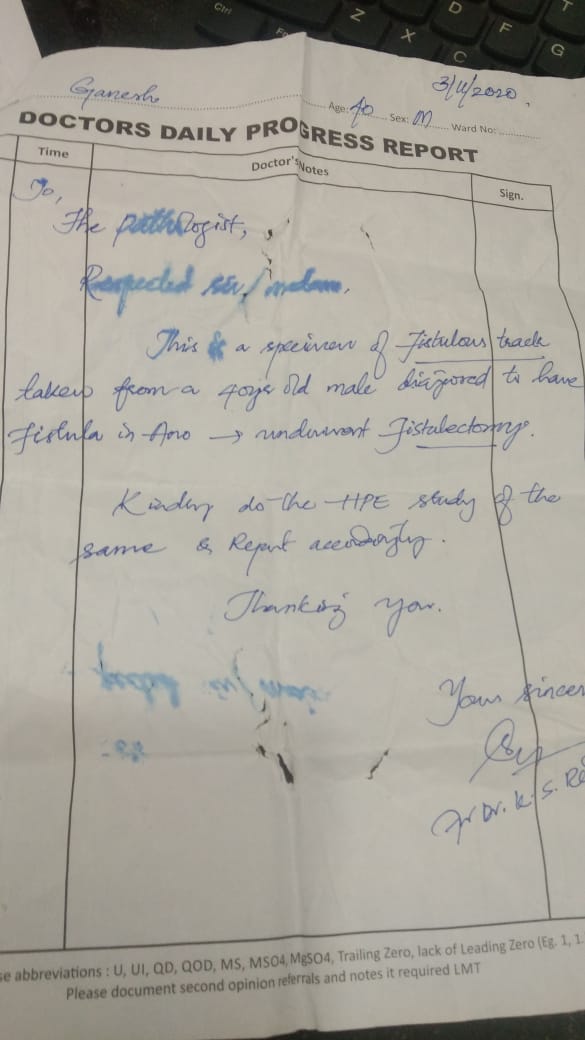 Ganesh
3/11/2020.
Age: 40 Sex: M Ward No:
DOCTORS DAILY PROGRESS REPORT
Time Doctor's Notes Sign.
To,
The pathologist,
Respected sir/madam,
This is a specimen of Fistulous track
taken from a 40yr old male diagnosed to have
Fistula in Ano → underwent Fistulectomy.
Kindly do the HPE study of the
same & Report accordingly.
Thanking you.
Your sincer
for Dr. K. S. Re
se abbreviations : U, UI, QD, QOD, MS, MSO4, MgSO4, Trailing Zero, lack of Leading Zero (Eg. 1, 1.
Please document second opinion referrals and notes it required LMT
Ctrl
Z
X
C
D
F
G
T